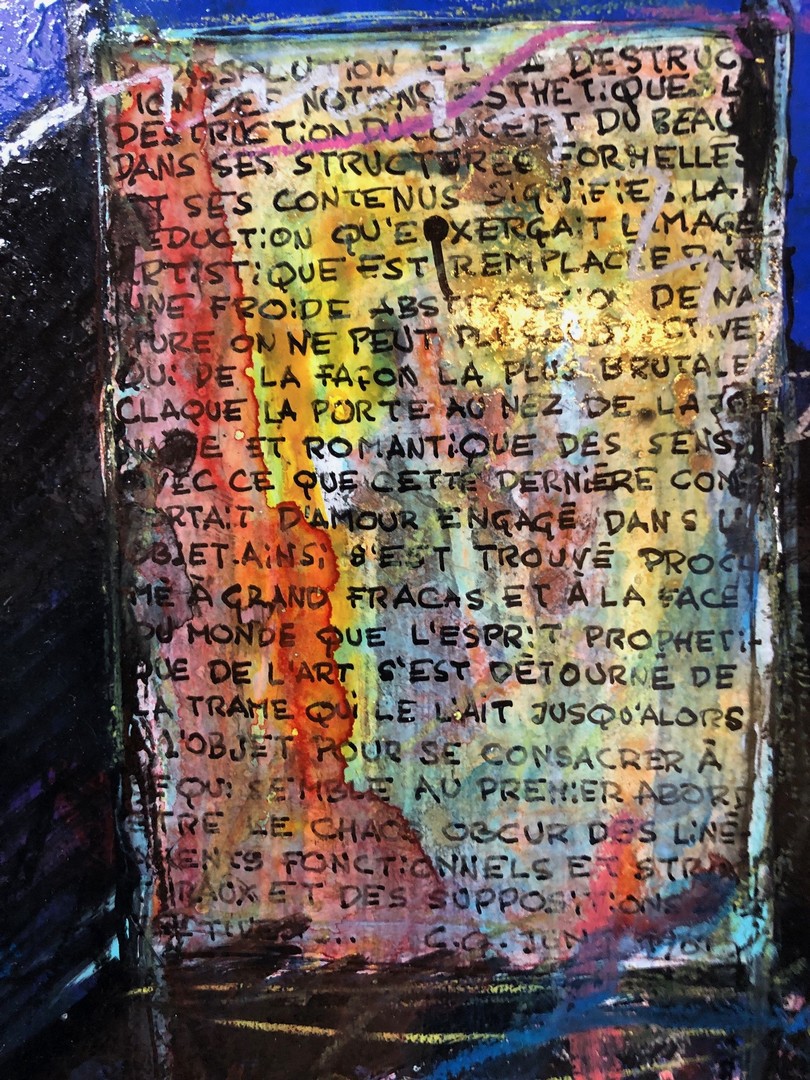 DISSOLUTION ET LA DESTRUC
TION DES NOTIONS ESTHÉTIQUES L
DESTRUCTION DU CONCEPT DU BEAU
DANS SES STRUCTURES FORMELLES
ET SES CONTENUS SIGNIFIÉS. LA
SÉDUCTION QU'EXERÇAIT L'IMAGE
ARTISTIQUE EST REMPLACÉE PAR
UNE FROIDE ABSTRACTION DE NA
TURE ON NE PEUT PLUS
QUI DE LA FAÇON LA PLUS BRUTALE
CLAQUE LA PORTE AU NEZ DE LA
ET ROMANTIQUE DES SENS
AVEC CE QUE CETTE DERNIÈRE COM
PORTAIT D'AMOUR ENGAGÉ DANS L'
OBJET. AINSI S'EST TROUVÉ PROCLA
MÉ À GRAND FRACAS ET À LA FACE
DU MONDE QUE L'ESPRIT PROPHETI-
QUE DE L'ART S'EST DÉTOURNÉ DE
LA TRAME QUI LE LIAIT JUSQU'ALORS
À L'OBJET POUR SE CONSACRER À
CE QUI SEMBLE AU PREMIER ABORD
ETRE LE CHAOS OBCUR DES LINÉ-
AMENTS FONCTIONNELS ET STRUC
TURAUX ET DES SUPPOSITIONS
C.G. JUNG